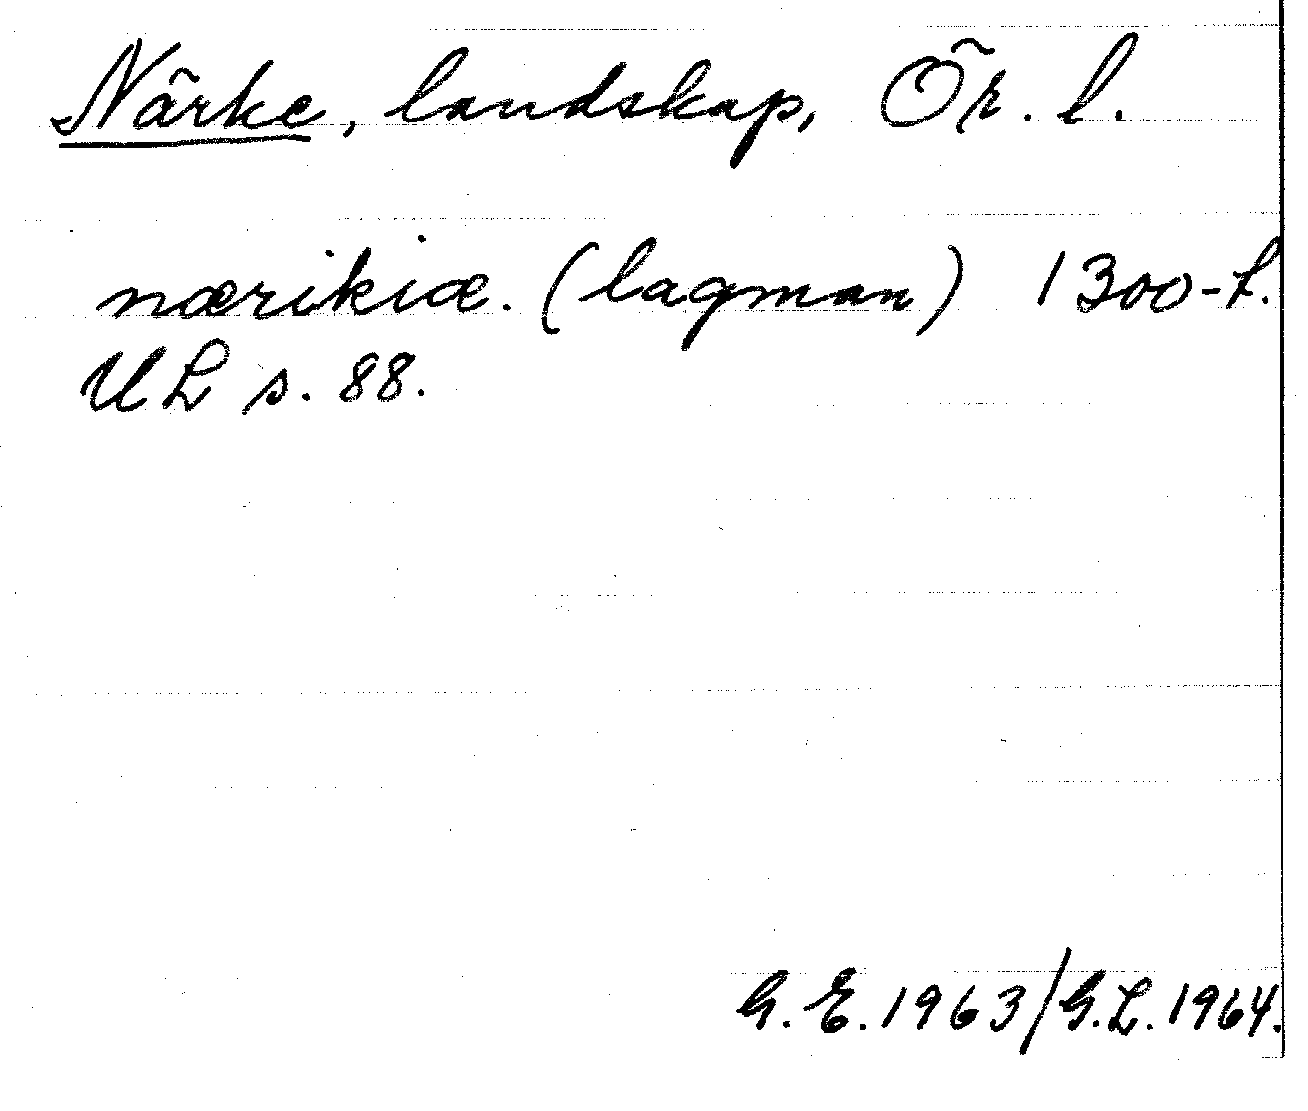 Närke, landskap, Ör. l.
nærikiæ. (lagman) 1300-t.
UL s. 88.
G. E. 1963/G.L. 1964.